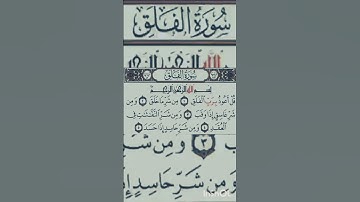 سُورَةُ الفَلَقِ
سُورَةُ الفَلَقِ
بِسْمِ اللَّهِ الرَّحْمَٰنِ الرَّحِيمِ
قُلْ أَعُوذُ بِرَبِّ الْفَلَقِ ١ مِن شَرِّ مَا خَلَقَ ٢ وَمِن
شَرِّ غَاسِقٍ إِذَا وَقَبَ ٣ وَمِن شَرِّ النَّفَّاثَاتِ فِي
الْعُقَدِ ٤ وَمِن شَرِّ حَاسِدٍ إِذَا حَسَدَ ٥
ب ٣ وَمِن شَرِّ
وَمِن شَرِّ حَاسِدٍ إِذَا